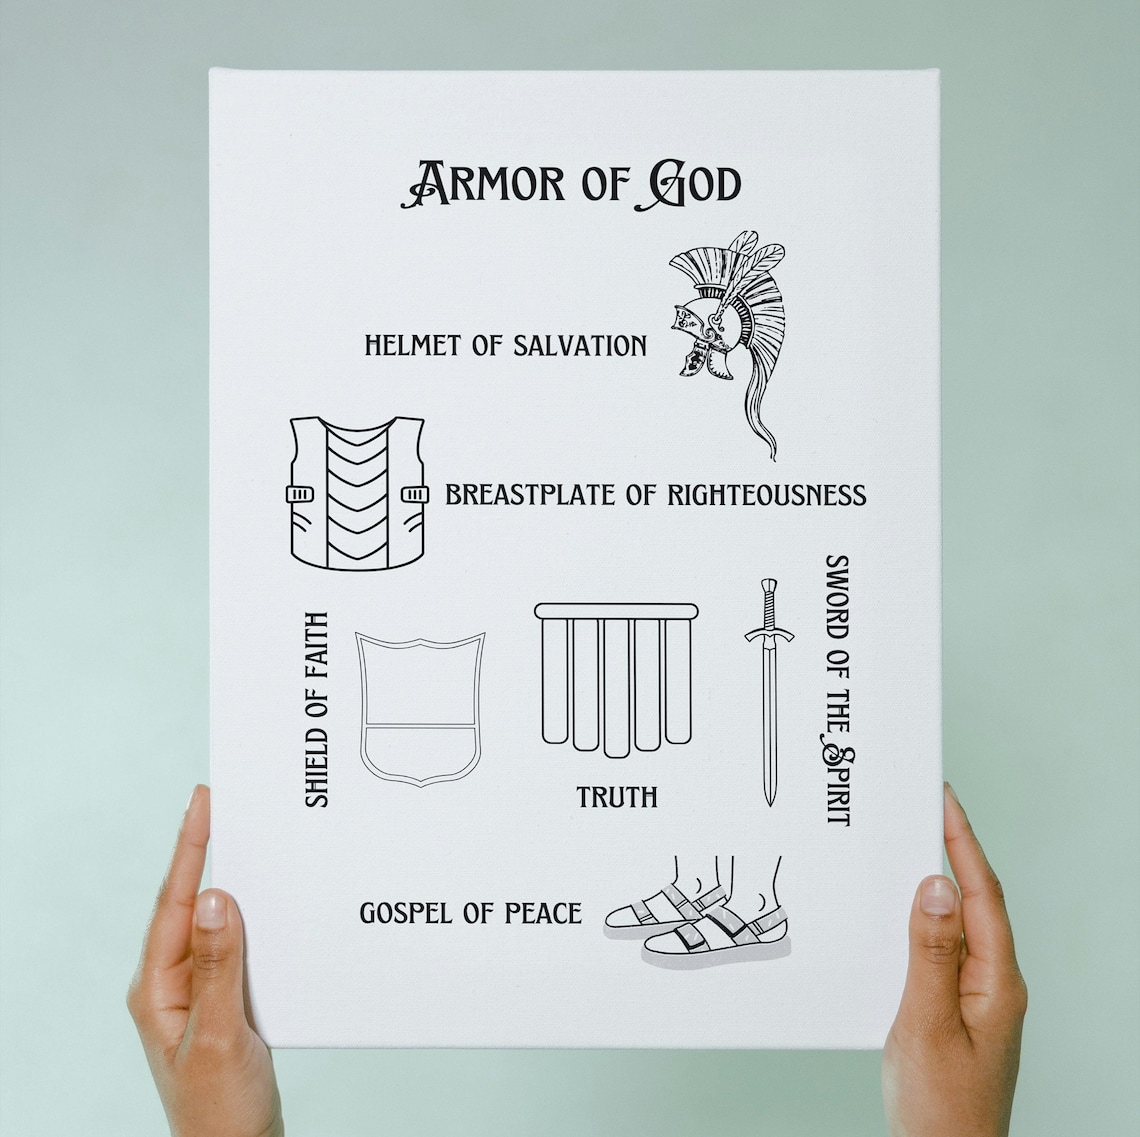 ARMOR OF GOD
HELMET OF SALVATION
BREASTPLATE OF RIGHTEOUSNESS
SHIELD OF FAITH
TRUTH
SWORD OF THE SPIRIT
GOSPEL OF PEACE